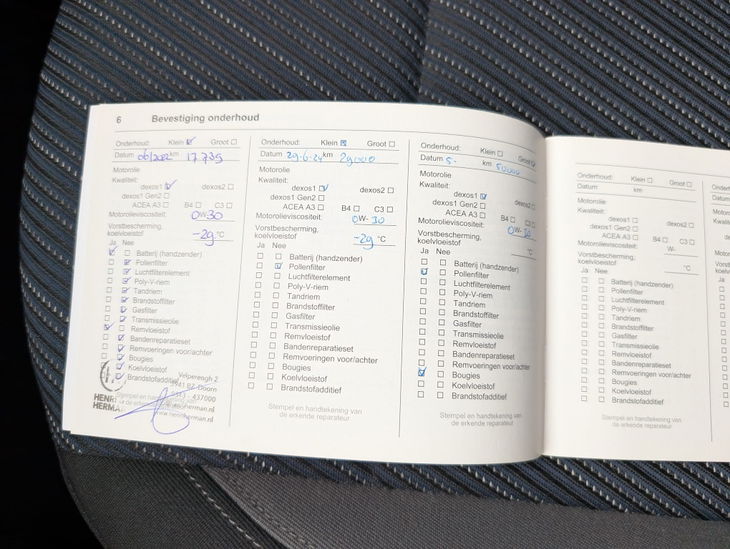 6 Bevestiging onderhoud
Onderhoud: Klein Groot
Datum 06/2022 km 17.735
Motorolie
Kwaliteit:
dexos1 dexos2
dexos1 Gen2
ACEA A3 B4 C3
Motorolieviscositeit: 0W-30
Vorstbescherming,
koelvloeistof -29 °C
Ja Nee
Batterij (handzender)
Pollenfilter
Luchtfilterelement
Poly-V-riem
Tandriem
Brandstoffilter
Gasfilter
Transmissieolie
Remvloeistof
Bandenreparatieset
Remvoeringen voor/achter
Bougies
Koelvloeistof
Brandstofadditief
Velperengh 2
3941 BZ Doorn
437000
HERMAN
www.henriherman.nl
Onderhoud: Klein Groot
Datum 29-6-24 km 29000
Motorolie
Kwaliteit:
dexos1 dexos2
dexos1 Gen2
ACEA A3 B4 C3
Motorolieviscositeit: 0W-30
Vorstbescherming,
koelvloeistof -29 °C
Ja Nee
Batterij (handzender)
Pollenfilter
Luchtfilterelement
Poly-V-riem
Tandriem
Brandstoffilter
Gasfilter
Transmissieolie
Remvloeistof
Bandenreparatieset
Remvoeringen voor/achter
Bougies
Koelvloeistof
Brandstofadditief
Stempel en handtekening van
de erkende reparateur
Onderhoud: Klein Groot
Datum 5- km 50000
Motorolie
Kwaliteit:
dexos1 dexos2
dexos1 Gen2
ACEA A3 B4 C3
Motorolieviscositeit: 0W-30
Vorstbescherming,
koelvloeistof °C
Ja Nee
Batterij (handzender)
Pollenfilter
Luchtfilterelement
Poly-V-riem
Tandriem
Brandstoffilter
Gasfilter
Transmissieolie
Remvloeistof
Bandenreparatieset
Remvoeringen voor/achter
Bougies
Koelvloeistof
Brandstofadditief
Stempel en handtekening van
de erkende reparateur
Onderhoud: Klein Groot
Datum km
Motorolie
Kwaliteit:
dexos1 dexos2
dexos1 Gen2
ACEA A3 B4 C3
Motorolieviscositeit: W-
Vorstbescherming,
koelvloeistof °C
Ja Nee
Batterij (handzender)
Pollenfilter
Luchtfilterelement
Poly-V-riem
Tandriem
Brandstoffilter
Gasfilter
Transmissieolie
Remvloeistof
Bandenreparatieset
Remvoeringen voor/achter
Bougies
Koelvloeistof
Brandstofadditief
Stempel en handtekening van
de erkende reparateur